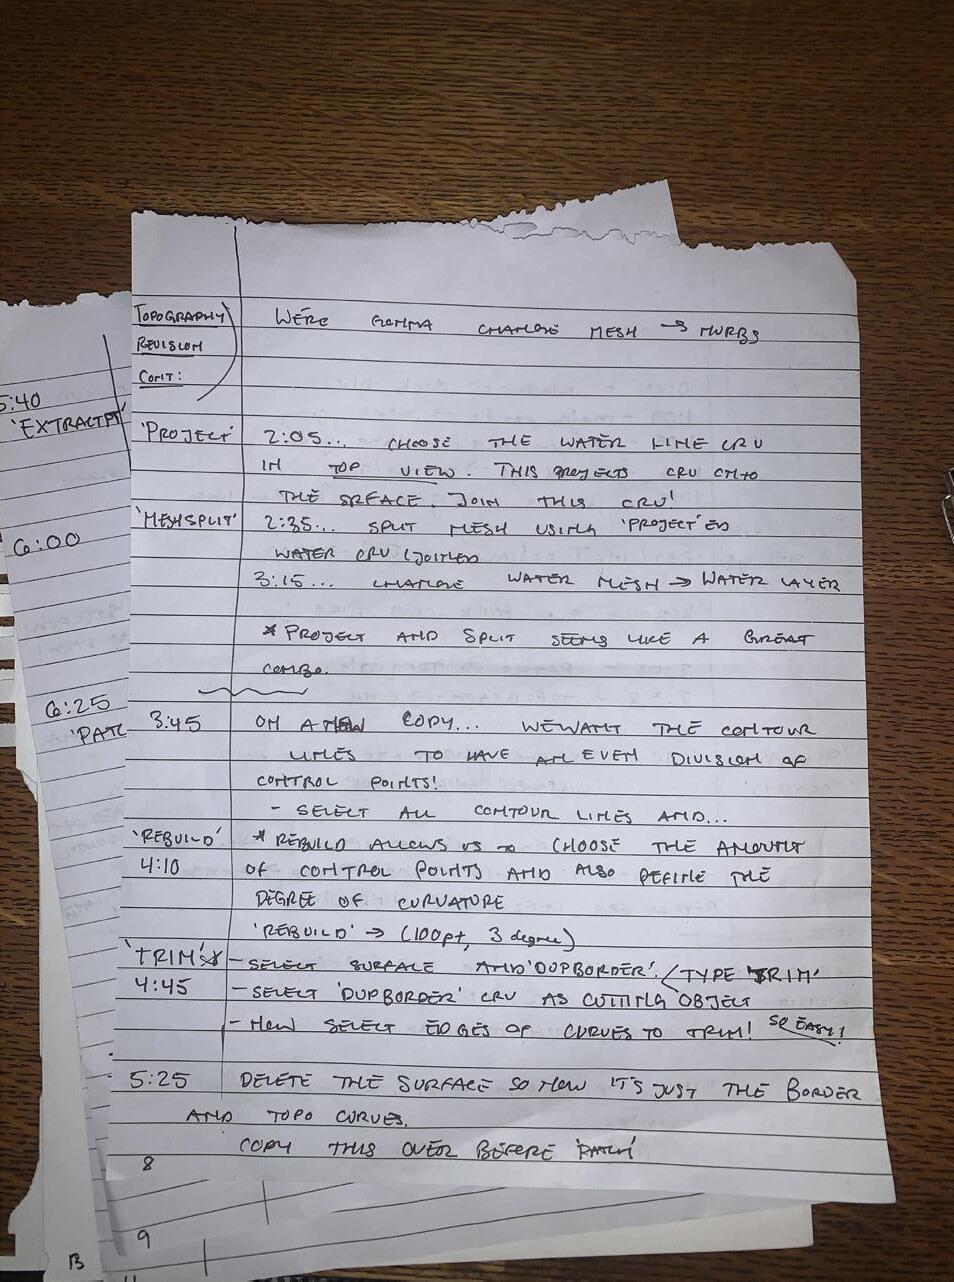 TOPOGRAPHY
REVISION
CONT:
WE'RE GONNA CHANGE MESH → NURBS
'PROJECT' 2:05... CHOOSE THE WATER LINE CRU
IN TOP VIEW. THIS PROJECTS CRU ONTO
THE SRFACE. JOIN THIS CRU!
'MESHSPLIT' 2:35... SPLIT MESH USING 'PROJECT'ED
WATER CRU (JOINED
3:15... CHANGE WATER MESH → WATER LAYER
* PROJECT AND SPLIT SEEMS LIKE A GREAT
COMBO.
3:45 ON A NEW COPY... WE WANT THE CONTOUR
LINES TO HAVE AN EVEN DIVISION OF
CONTROL POINTS!
- SELECT ALL CONTOUR LINES AND...
'REBUILD' * REBUILD ALLOWS US TO CHOOSE THE AMOUNT
4:10 OF CONTROL POINTS AND ALSO DEFINE THE
DEGREE OF CURVATURE
'REBUILD' → (100pt, 3 degree)
'TRIM'* - SELECT SURFACE AND 'DUPBORDER'. TYPE 'TRIM'
4:45 - SELECT 'DUPBORDER' CRU AS CUTTING OBJECT
- NOW SELECT EDGES OF CURVES TO TRIM! SO EASY!
5:25 DELETE THE SURFACE SO NOW IT'S JUST THE BORDER
AND TOPO CURVES.
COPY THIS OVER BEFORE 'PATCH'
8
5:40
'EXTRACTPT'
6:00
6:25
'PATC
9
B
11